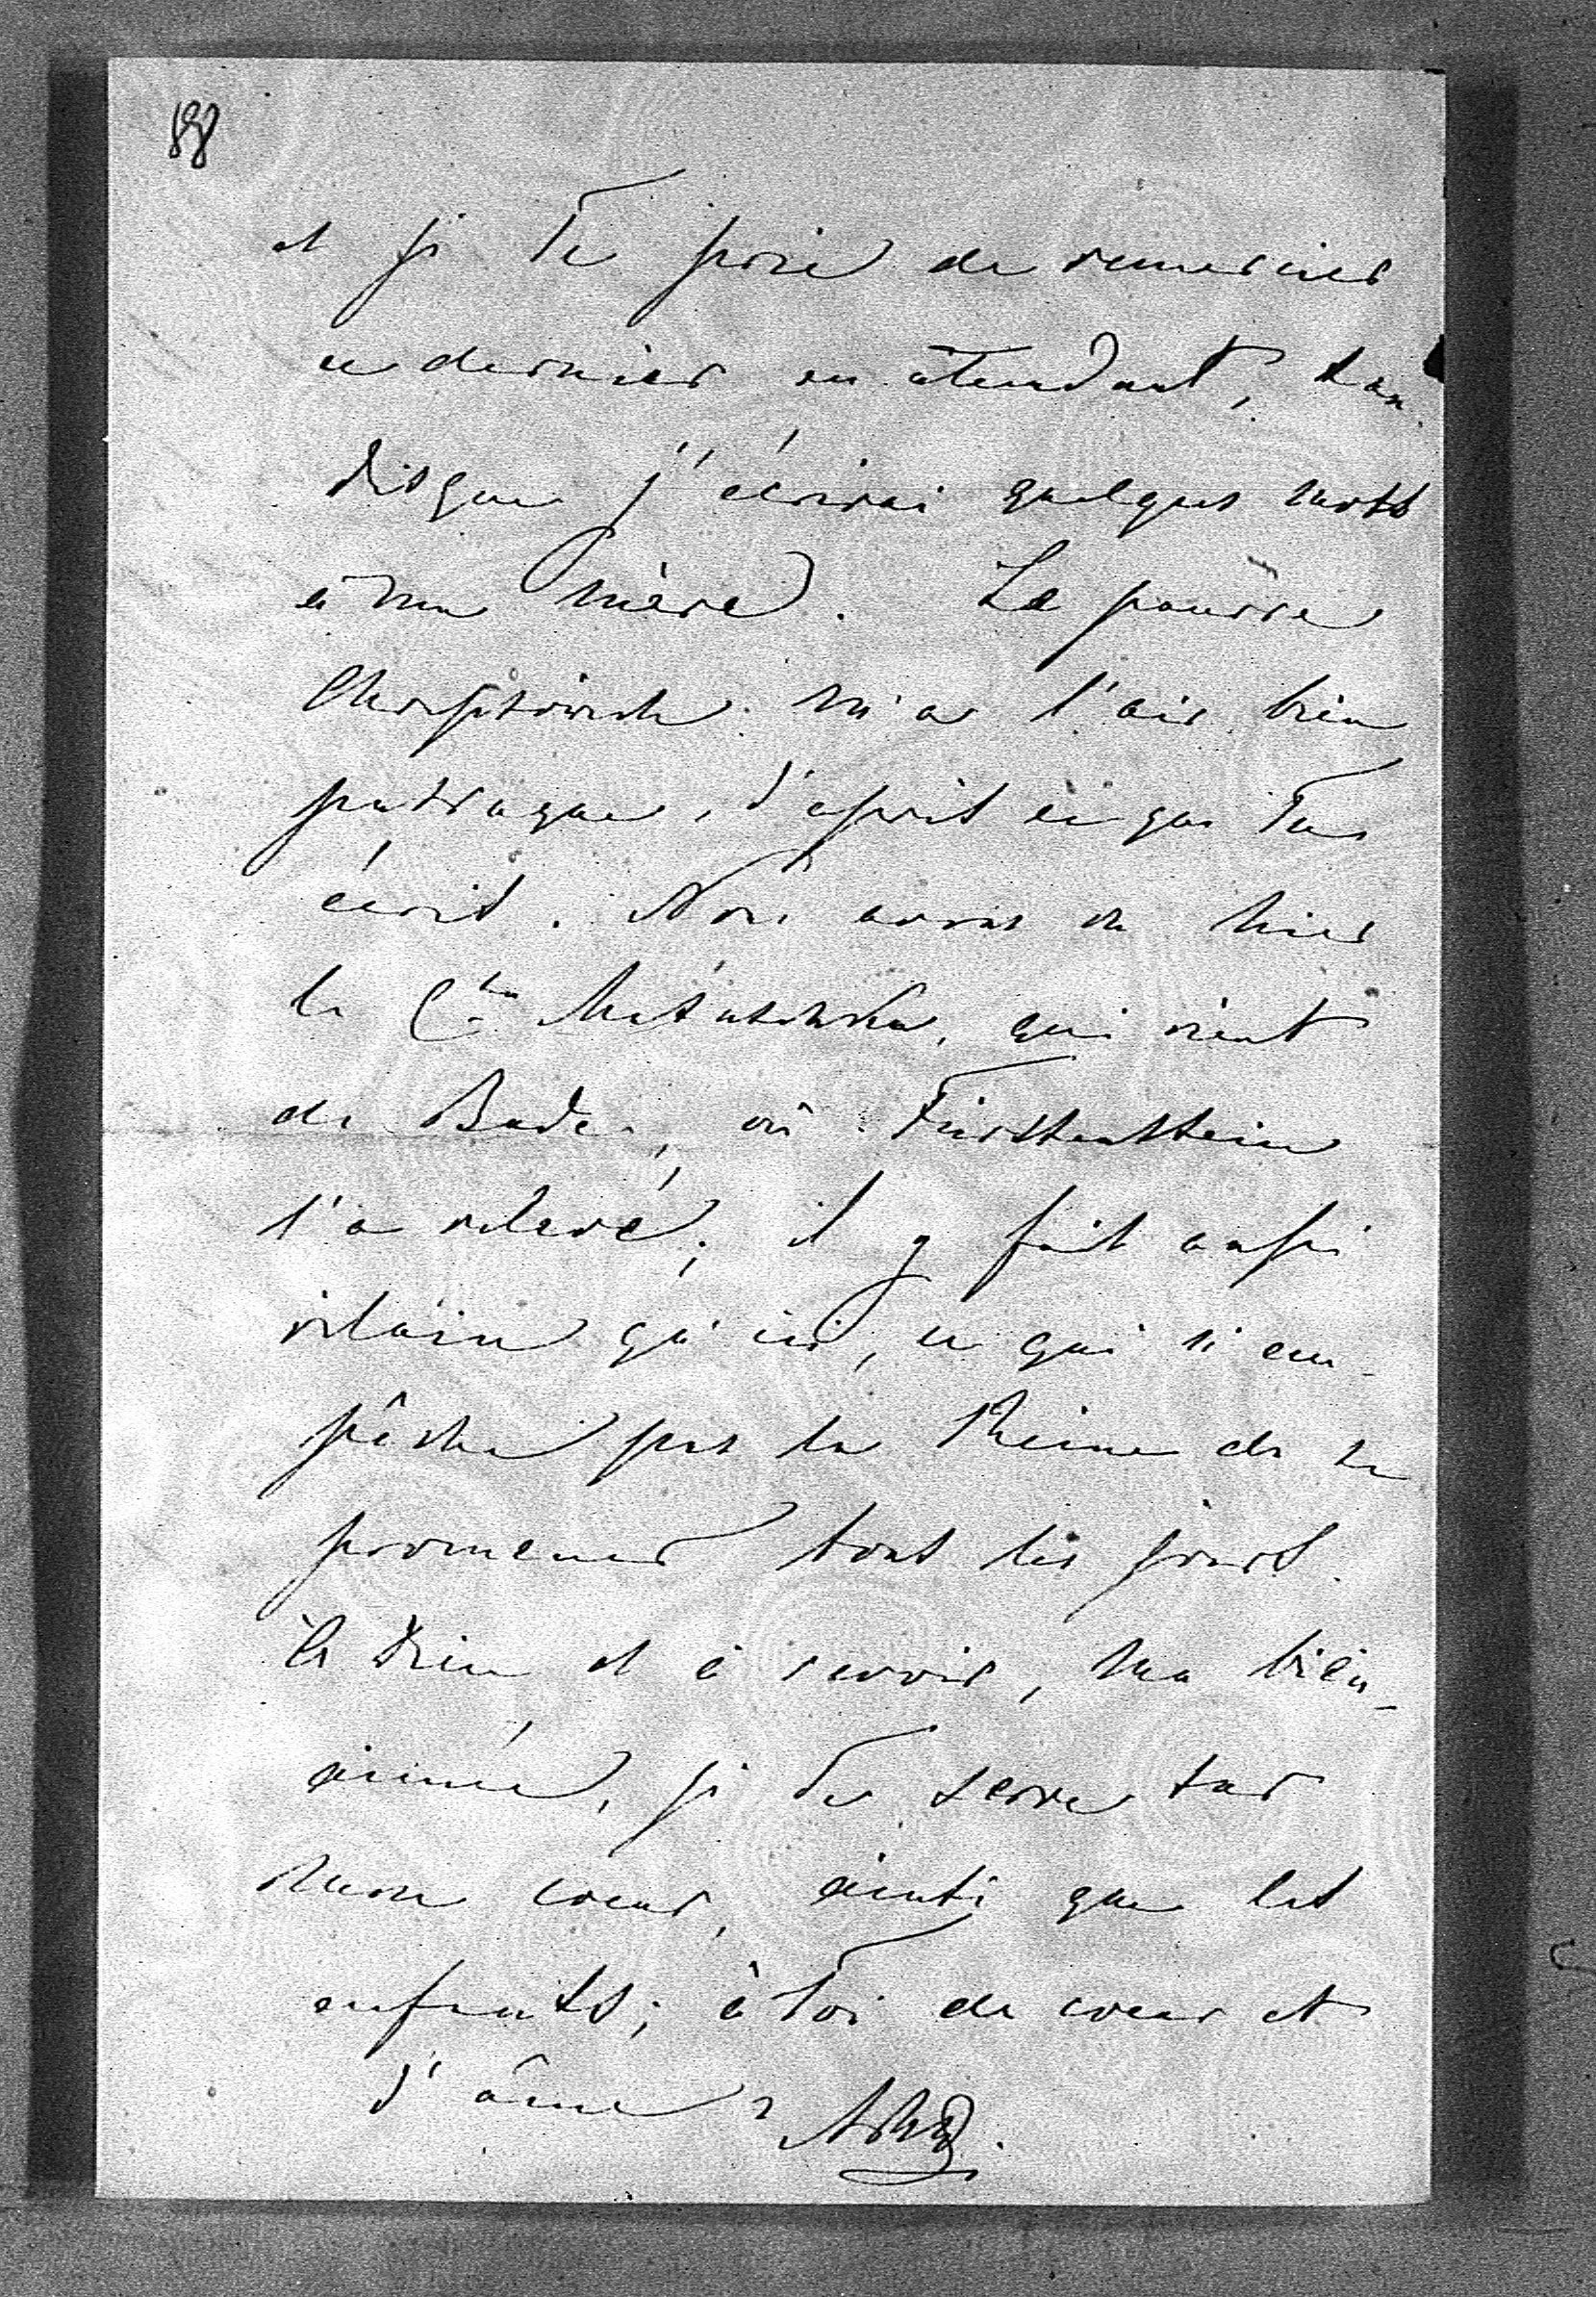 et je Te prie de remercier
ce dernier en attendant, tan
disque j'écrirai quelques mots
à ma mère. Le pauvre
Chreptovich m'a l'air bien
patraque, d'après ce que Tu
écris. Nous avons vu hier
la C<sup>tesse</sup> Matuschka, qui vient
de Bade, où Fürstenstein
l'a relevé; il y fait aussi
vilain qu'ici, ce qui n'em-
pêche pas la Reine de se
promener tous les jours.
A Dieu et à revoir, ma bien-
aimée, je Te serre sur
mon coeur, ainsi que les
enfants; à Toi de coeur et
d'âme,